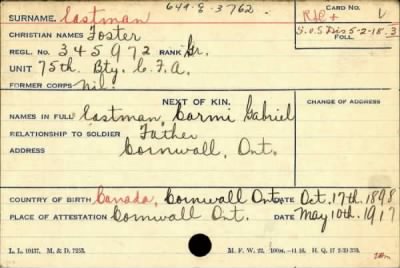 649-E-3762.
SURNAME. Eastman CARD NO. 1
CHRISTIAN NAMES Foster
REGL. NO. 345972 RANK Gr. S.O.S Dis 5-2-18. 3
FOLL.
UNIT 75th. Bty. C.F.A.
FORMER CORPS Nil.
NEXT OF KIN. CHANGE OF ADDRESS
NAMES IN FULL Eastman, Carmi Gabriel
RELATIONSHIP TO SOLDIER Father
ADDRESS Cornwall, Ont.
COUNTRY OF BIRTH Canada, Cornwall Ont. DATE Oct. 17th. 1898
PLACE OF ATTESTATION Cornwall Ont. DATE May 10th. 1917